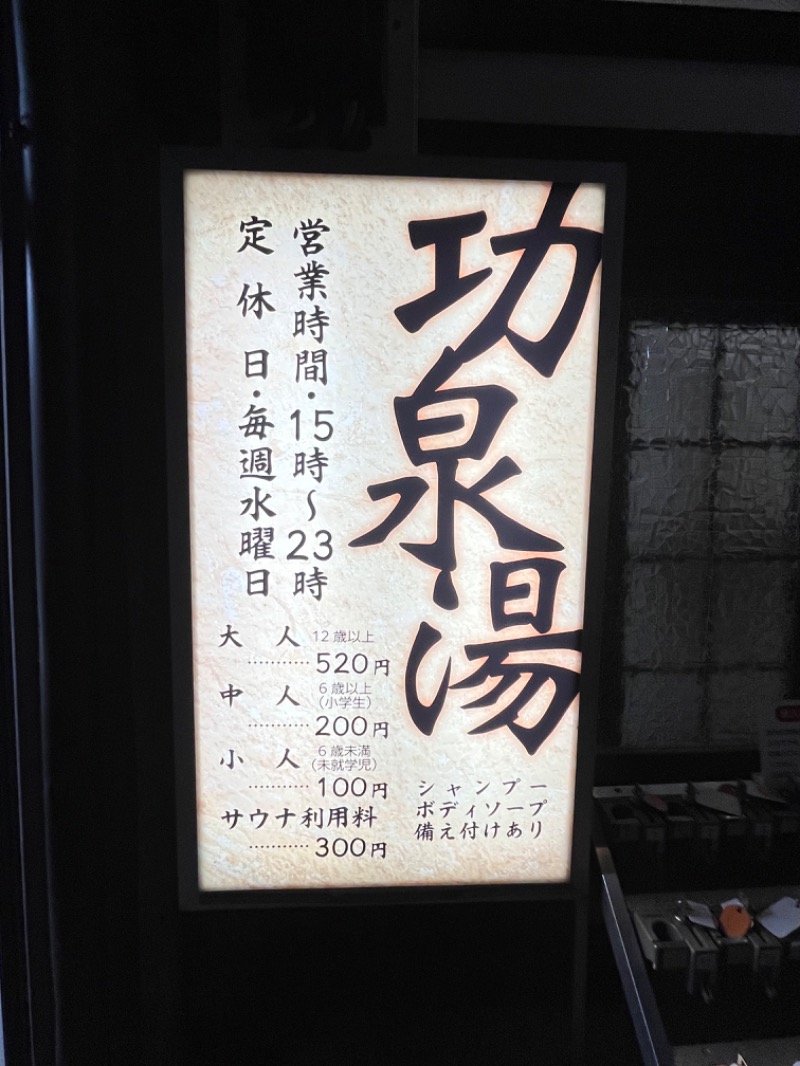 功泉湯
営業時間・15時～23時
定休日・毎週水曜日
大人 12歳以上
…………520円
中人 6歳以上
（小学生）
…………200円
小人 6歳未満
（未就学児）
…………100円
サウナ利用料
…………300円
シャンプー
ボディソープ
備え付けあり